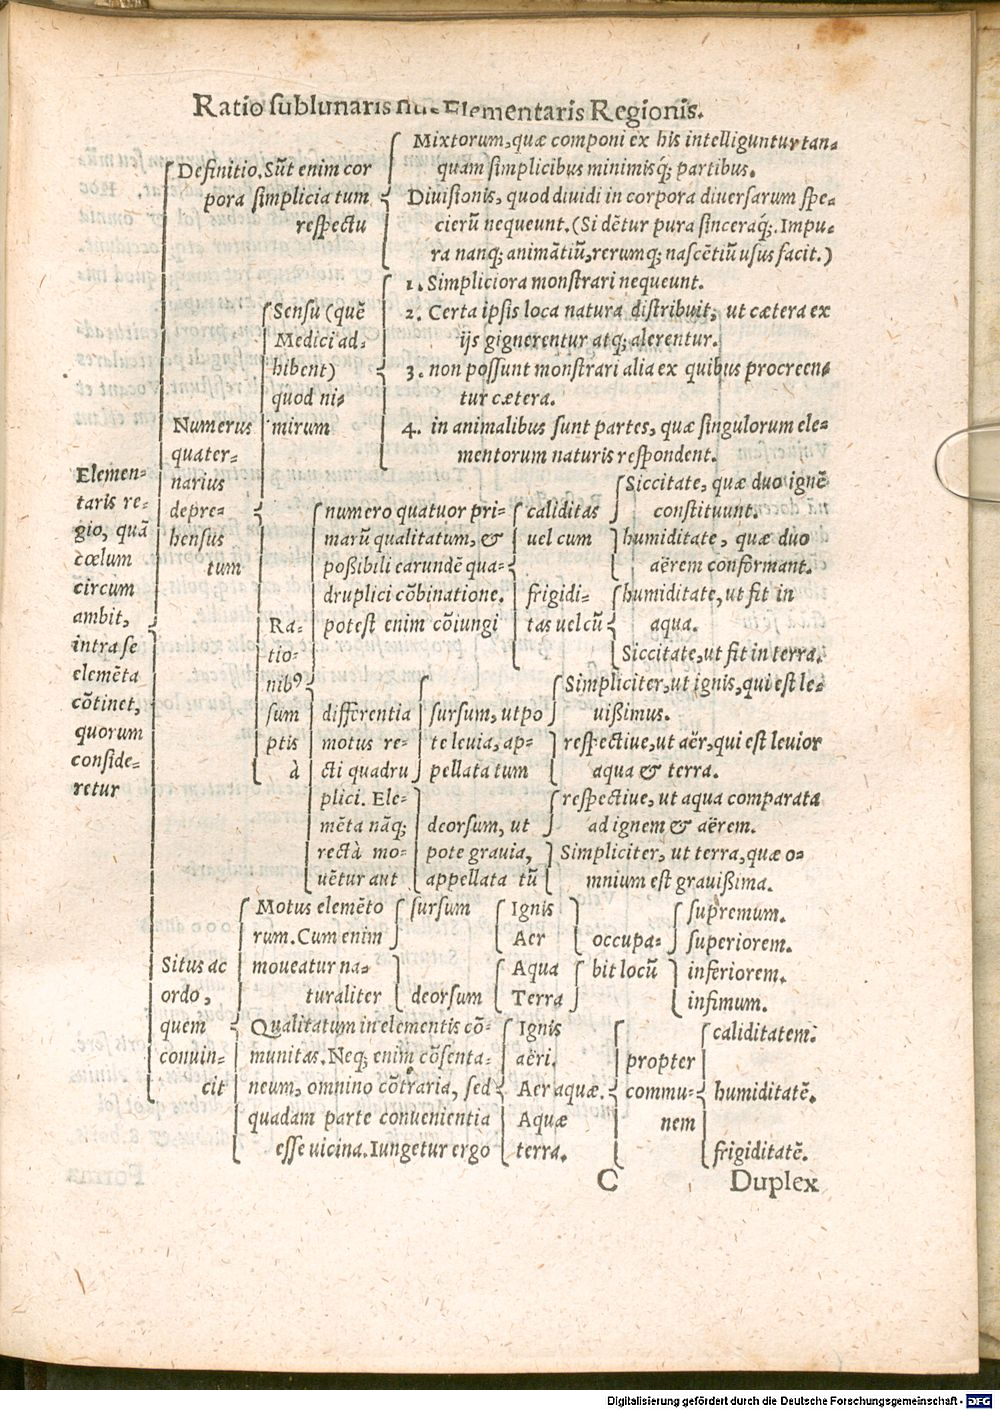 Ratio sublunaris siue Elementaris Regionis.
Elemen-
taris re-
gio, quã
cœlum
circùm
ambit,
intra se
elemẽta
cõtinet,
quorum
conside-
retur
Definitio. Sũt enim cor
pora simplicia tum
respectu
Mixtorum, quæ componi ex his intelliguntur tan-
quam simplicibus minimisq́; partibus.
Diuisionis, quod diuidi in corpora diuersarum spe-
cierũ nequeunt. (Si dẽtur pura sinceraq́;. Impu-
ra nanq; animãtiũ, rerumq; nascẽtiũ usus facit.)
Numerus
quater-
narius
depre-
hensus
tum
Sensu (quẽ
Medici ad-
hibent)
quod ni-
mirum
1. Simpliciora monstrari nequeunt.
2. Certa ipsis loca natura distribuit, ut cætera ex
ijs gignerentur atq; alerentur.
3. non possunt monstrari alia ex quibus procreen-
tur cætera.
4. in animalibus sunt partes, quæ singulorum ele-
mentorum naturis respondent.
Ra-
tio-
nibꝰ
sum
ptis
à
numero quatuor pri-
marũ qualitatum, &
poßibili earundẽ qua-
druplici cõbinatione.
potest enim cõiungi
caliditas
uel cum
Siccitate, quæ duo ignẽ
constituunt.
humiditate, quæ duo
aërem conformant.
frigidi-
tas uel cũ
humiditate, ut fit in
aqua.
Siccitate, ut fit in terra.
differentia
motus re-
cti quadru
plici. Ele-
mẽta nãq;
rectà mo-
uẽtur aut
sursum, utpo
te leuia, ap-
pellata tum
Simpliciter, ut ignis, qui est le-
uißimus.
respectiue, ut aër, qui est leuior
aqua & terra.
deorsum, ut
pote grauia,
appellata tũ
respectiue, ut aqua comparata
ad ignem & aërem.
Simpliciter, ut terra, quæ o-
mnium est grauißima.
Situs ac
ordo,
quem
conuin-
cit
Motus elemẽto
rum. Cum enim
moueatur na-
turaliter
sursum
deorsum
Ignis
Aer
Aqua
Terra
occupa-
bit locũ
supremum.
superiorem.
inferiorem.
infimum.
Qualitatum in elementis cõ-
munitas. Neq; enim cõsenta-
neum, omnino cõtraria, sed
quadam parte conuenientia
esse uicina. Iungetur ergo
Ignis
aëri.
Aer aquæ.
Aquæ
terra.
propter
commu-
nem
caliditatem.
humiditatẽ.
frigiditatẽ.
C
Duplex
Digitalisierung gefördert durch die Deutsche Forschungsgemeinschaft - DFG